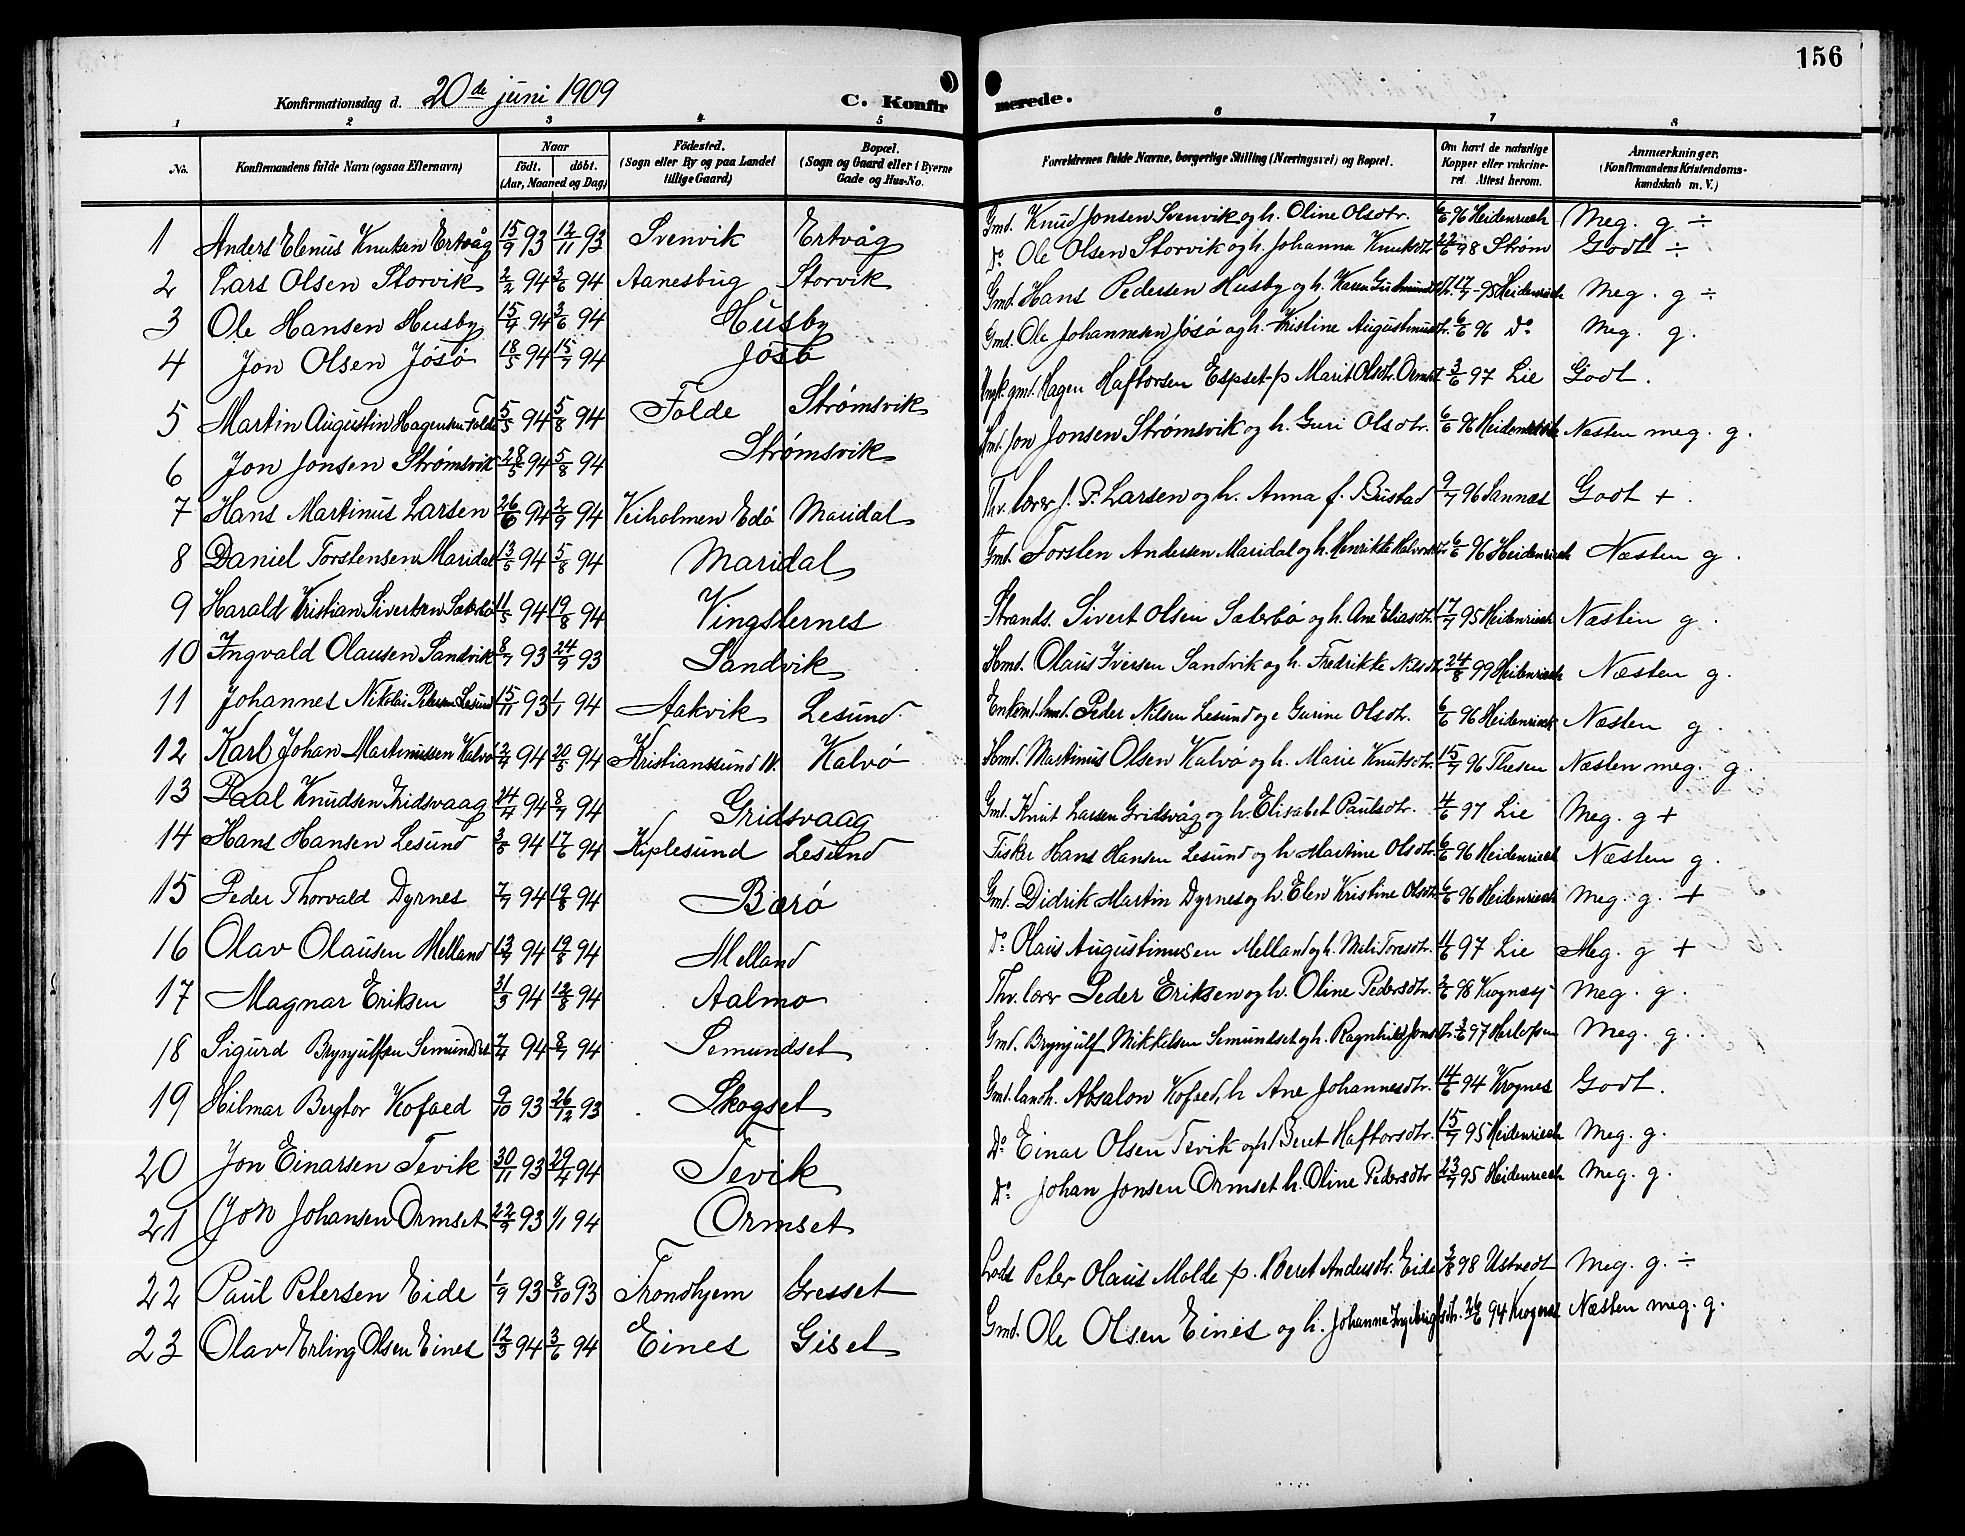 156
Konfirmationsdag d. 20de juni 1909
C. Konfirmerede.
1 2 3 4 5 6 7 8
No.
Konfirmandens fulde Navn (ogsaa Efternavn)
Naar
födt. döbt.
(Aar, Maaned og Dag)
Födested.
(Sogn eller By og paa Landet
tillige Gaard)
Bopæl.
(Sogn og Gaard eller i Byerne
Gade og Hus-No.
Forældrenes fulde Navne, borgerlige Stilling (Næringsvei) og Bopæl.
Om havt de naturlige
Kopper eller vakcine-
ret Attest herom.
Anmærkninger.
(Konfirmandens Kristendoms-
kundskab m. V.)
1 Anders Elenus Knutsen Ertvåg 15/9 93 12/11 93 Svenvik Ertvåg Gmd. Knud Jonsen Svenvik og h. Oline Olsdtr. 6/6 96 Heidenreich Meg. g ÷
2 Lars Olsen Storvik 2/2 94 3/6 94 Aanesbug Storvik Do Ole Olsen Storvik og h. Johanna Knutsdtr. 98 Strøm Godt ÷
3 Ole Hansen Husby 15/4 94 3/6 94 Husby Gmd. Hans Pedersen Husby og h. Karen 17/7 95 Heidenreich Meg. g ÷
4 Jon Olsen Jösö 18/5 94 15/7 94 Jösö Gmd. Ole Johannesen Jösö og h. Kristine Augustinusdtr. 6/6 96 Do Meg. g.
5 Martin Augustin Hagensen Folde 5/5 94 5/8 94 Folde Strømsvik Ungk. gmd. Hagen Haftorsen Espset p Marit Olsdtr. Ormset 3/6 97 Lie Godt.
6 Jon Jonsen Strømsvik 28/5 94 5/8 94 Strømsvik Jon Jonsen Strømsvik og h. Guri Olsdtr. 6/6 96 Heidenreich Næsten meg. g.
7 Hans Martinus Larsen 26/6 94 2/9 94 Veiholmen Edö Maridal Thv. lærer J. P. Larsen og h. Anna f. Bustad 9/7 96 Sannæs Godt +
8 Daniel Torstensen Maridal 13/5 94 5/8 94 Maridal Gmd. Torsten Andersen Maridal og h. Henrikke Halvorsdtr. 6/6 96 Heidenreich Næsten g.
9 Harald Kristian Sivertsen Sæterbö 11/5 94 19/8 94 Vingsternes Strands. Sivert Olsen Sæterbö og h. Ane Eliasdtr. 17/7 95 Heidenreich Næsten g.
10 Ingvald Olausen Sandvik 8/7 93 24/9 93 Sandvik Hmd. Olaus Iversen Sandvik og h. Fredrikke Nilsdtr. 24/8 99 Heidenreich Næsten g.
11 Johannes Nikolai Petersen Lesund 15/11 93 1/1 94 Aakvik Lesund. Enkemd. Hmd. Peder Nilsen Lesund og e Gurine Olsdtr. 6/6 96 Heidenreich Næsten g.
12 Karl Johan Martinussen Kalvö 2/4 94 20/5 94 Kristianssund N. Kalvö Hmd. Martinus Olsen Kalvö og h. Marie Knutsdtr. 15/7 96 Thesen Næsten meg. g.
13 Paal Knudsen Gridsvaag 24/4 94 8/7 94 Gridsvaag Gmd. Knut Larsen Gridsvåg og h. Elisabet Paulsdtr. 97 Lie Meg. g +
14 Hans Hansen Lesund 3/5 94 17/6 94 Kiplesund Lesund Fisker Hans Hansen Lesund og h. Martine Olsdtr. 6/6 96 Heidenreich Næsten g.
15 Peder Thorvald Dyrnes 7/7 94 19/8 94 Bærö Gmd. Didrik Martin Dyrnes og h. Elen Kristine Olsdtr. 6/6 96 Heidenreich Meg. g. +
16 Olav Olausen Melland 13/7 94 19/8 94 Melland Do Olaus Augustinusen Melland og h. Meli Toresdtr. 97 Lie Meg. g +
17 Magnar Eriksen 31/3 94 12/8 94 Aalmo Thv. lærer Peder Eriksen og h. Oline Pedersdtr. 98 Krognæs Meg. g.
18 Sigurd Brynjulfsen Semundset 7/4 94 8/7 94 Semundset Gmd. Brynjulf Mikkelsen Semundset og h. Ragnhild Jonsdtr. 97 Herlofsen Meg. g.
19 Hilmar Bergtor Kofoed 9/10 93 26/12 93 Skogset Gmd. landh. Absalon Kofoed, h Ane Johannesdtr. 14/6 94 Krognes Godt.
20 Jon Einarsen Tevik 30/11 93 29/4 94 Tevik Do Einar Olsen Tevik og h Beret Haftorsdtr. 15/7 95 Heidenreich Meg. g.
21 Jon Johansen Ormset 22/9 93 1/1 94 Ormset Do Johan Jonsen Ormset h. Oline Pedersdtr 23/7 95 Heidenreich Meg. g.
22 Paul Petersen Eide 1/9 93 8/10 93 Trondhjem Gresset Lods Peter Olaus Molde p. Beret Andersdtr. Eide 98 Ustvedt Meg. g. ÷
23 Olav Erling Olsen Eines 12/3 94 3/6 94 Eines Giset Gmd. Ole Olsen Eines og h. Johanna Ingebrigtsdtr. 26/6 94 Krognæs Næsten meg. g.